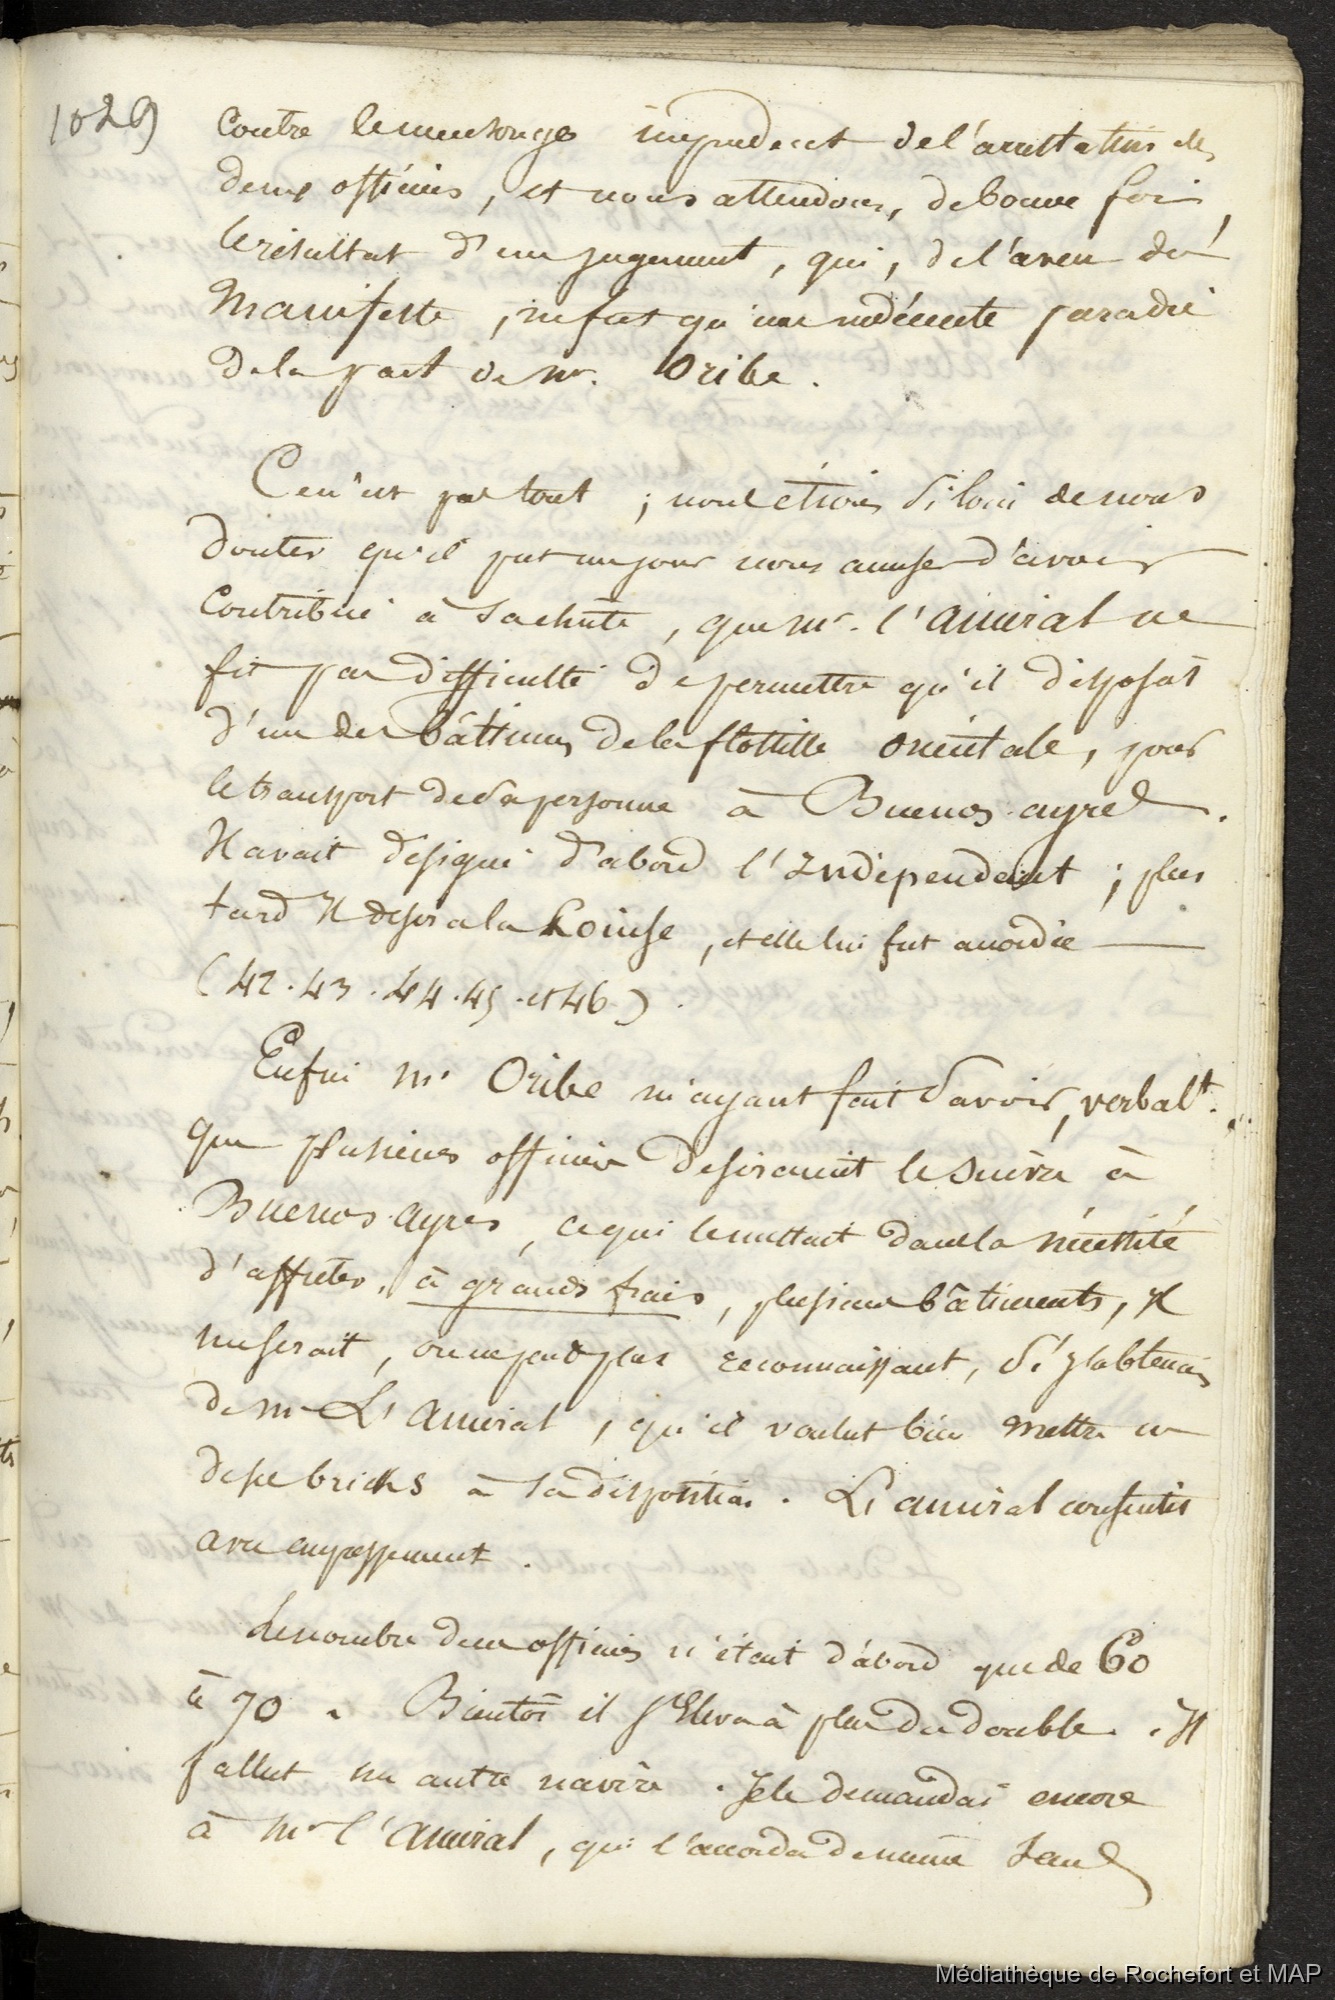 1029
contre le mensonge impudent de l'arrestation des
deux officiers, et nous attendions, de bonne foi,
le résultat d'un jugement, qui, de l'aveu du
Manifeste, ne fut qu'une indécente parodie
de la part de Mr. Oribe.
Ce n'est pas tout ; nous étions si loin de nous
douter qu'il put un jour nous accuser d'avoir
contribué à sa chûte, que Mr. l'amiral ne
fit pas difficulté de permettre qu'il disposât
d'un des bâtimens de la flottille orientale, pour
le transport de sa personne à Buenos ayres.
Il avait désigné d'abord l'Indépendant ; plus
tard Il desira la Louise, et elle lui fut accordée
(42. 43. 44. 45. et 46).
Enfin Mr. Oribe m'ayant fait savoir, verbalt.
que plusieurs officiers desiraient le suivre à
Buenos ayres, ce qui le mettait dans la nécessité
d'affreter, à grands frais, plusieurs bâtiments, Il
me serait, on ne peut plus reconnaissant, si j'obtenais
de Mr L'amiral, qu'il voulut bien mettre un
de se bricks à sa disposition. L'amiral consentit
avec empressement.
Le nombre de ces officiers n'était d'abord que de 60
à 70. Bientôt il s'Eleva à plus du double. Il
fallut un autre navire. Je le demandai encore
à Mr l'amiral, qui l'accorda de même sans
Médiathèque de Rochefort et MAP